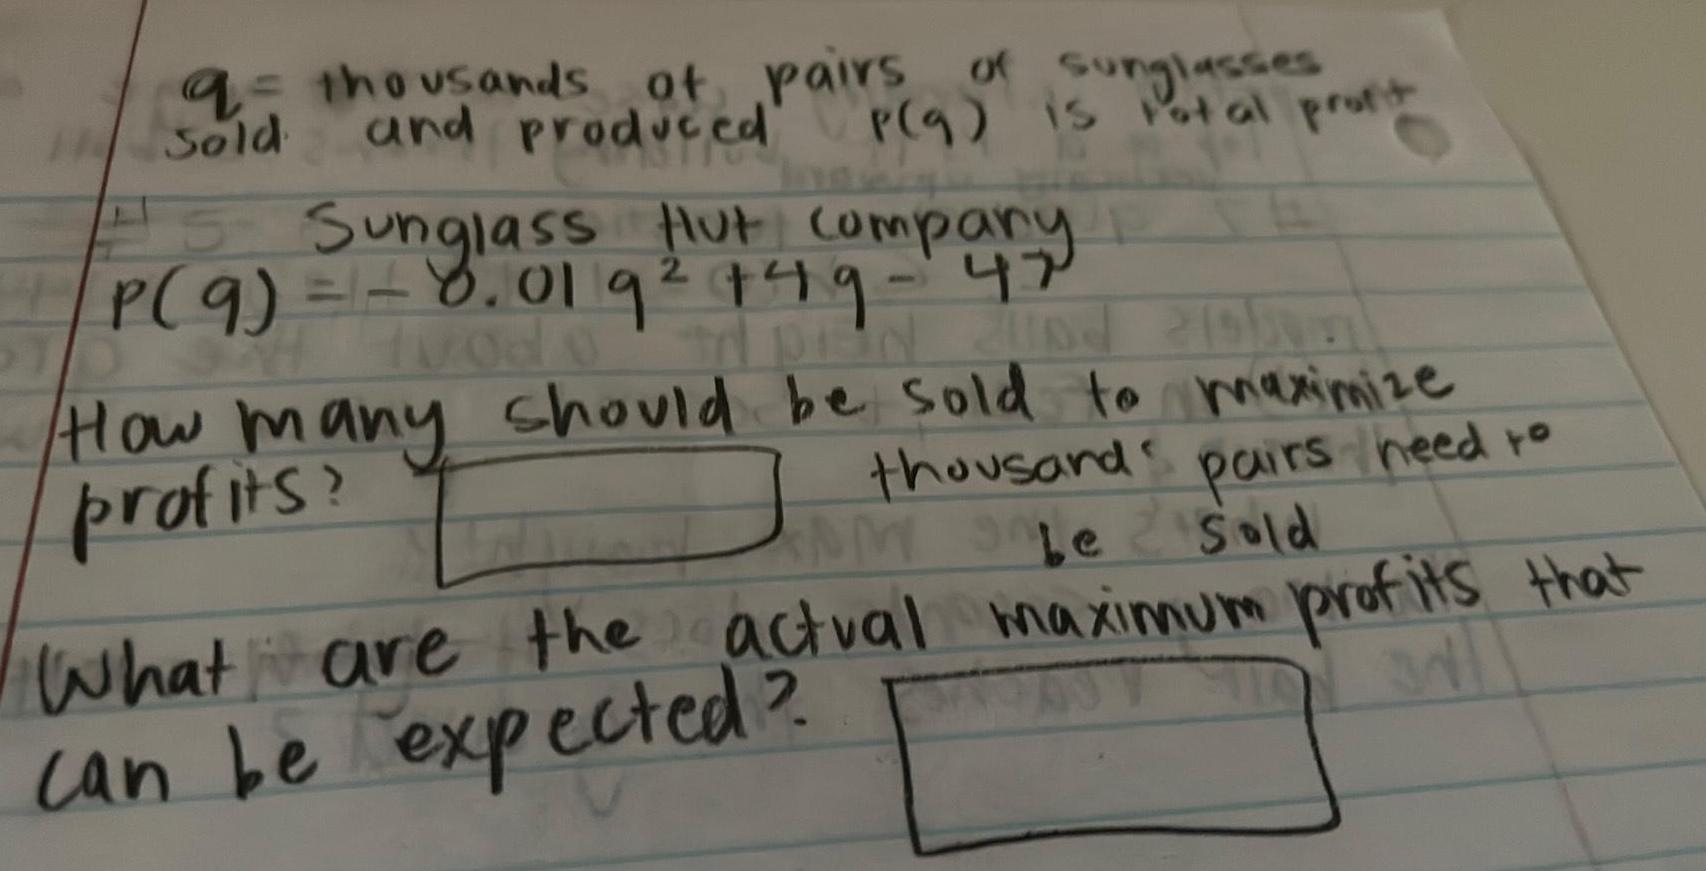 q = thousands of pairs of sunglasses
sold and produced P(q) is total profit
Sunglass Hut company
P(q) = - 0.01q² + 4q - 47
How many should be sold to maximize
profits? thousands pairs need to
be sold
What are the actual maximum profits that
can be expected?